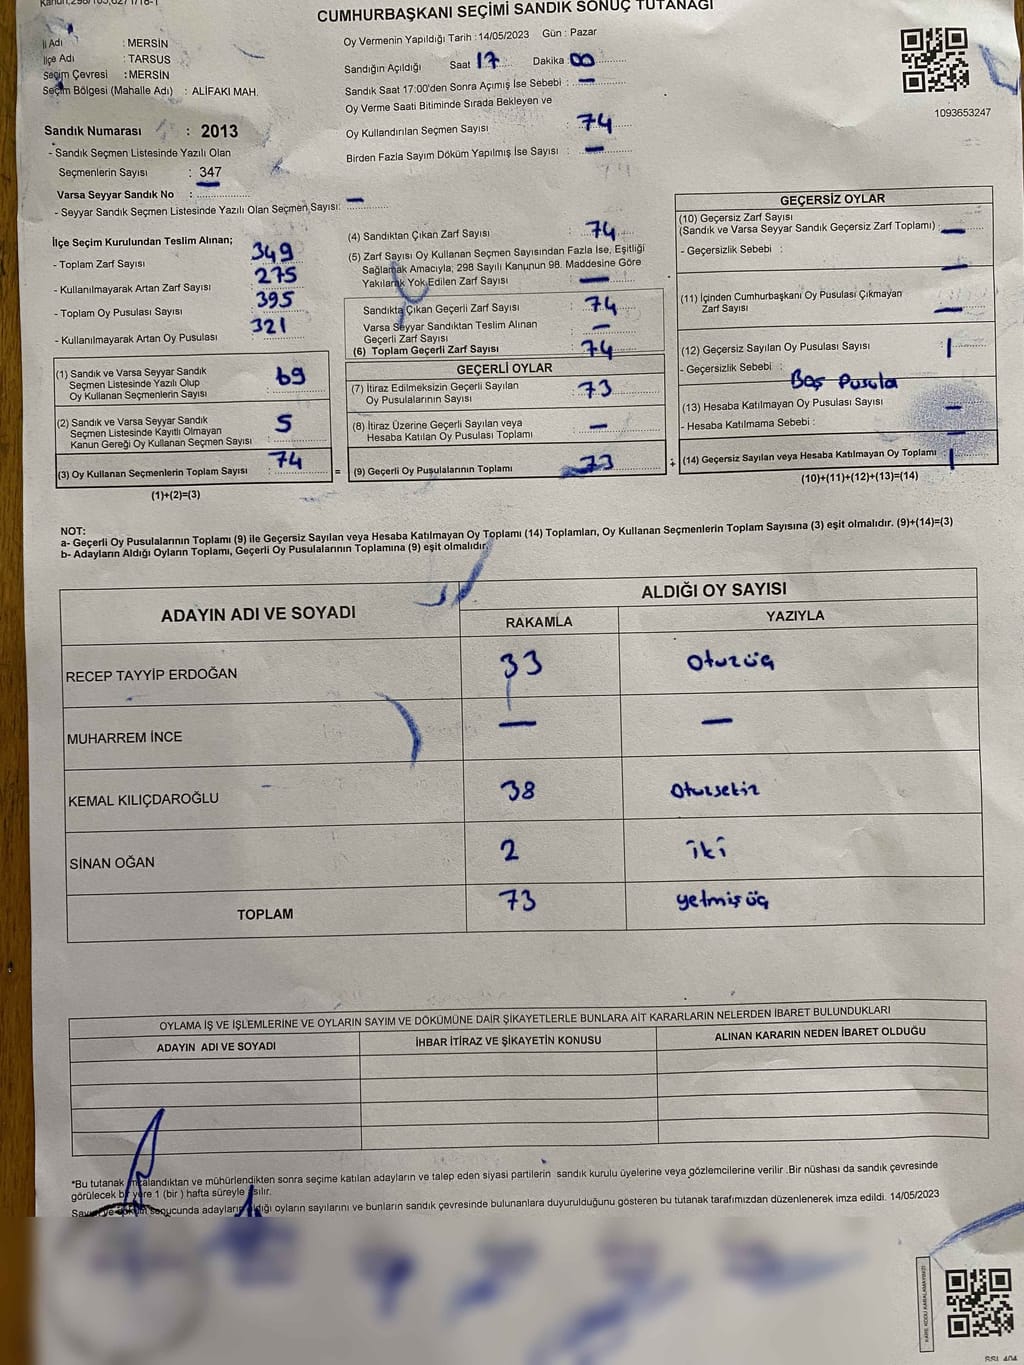 CUMHURBAŞKANI SEÇİMİ SANDIK SONUÇ TUTANAĞI
İl Adı : MERSİN
İlçe Adı : TARSUS
Seçim Çevresi : MERSİN
Seçim Bölgesi (Mahalle Adı) : ALİFAKI MAH.
Sandık Numarası : 2013
- Sandık Seçmen Listesinde Yazılı Olan
Seçmenlerin Sayısı : 347
Varsa Seyyar Sandık No : —
- Seyyar Sandık Seçmen Listesinde Yazılı Olan Seçmen Sayısı: —
Oy Vermenin Yapıldığı Tarih : 14/05/2023 Gün : Pazar
Sandığın Açıldığı Saat 17 Dakika 00
Sandık Saat 17:00'den Sonra Açımış İse Sebebi : —
Oy Verme Saati Bitiminde Sırada Bekleyen ve
Oy Kullandırılan Seçmen Sayısı : 74
Birden Fazla Sayım Döküm Yapılmış İse Sayısı : —
1093653247
İlçe Seçim Kurulundan Teslim Alınan;
- Toplam Zarf Sayısı : 349
- Kullanılmayarak Artan Zarf Sayısı : 275
- Toplam Oy Pusulası Sayısı : 395
- Kullanılmayarak Artan Oy Pusulası : 321
(1) Sandık ve Varsa Seyyar Sandık
Seçmen Listesinde Yazılı Olup
Oy Kullanan Seçmenlerin Sayısı : 69
(2) Sandık ve Varsa Seyyar Sandık
Seçmen Listesinde Kayıtlı Olmayan
Kanun Gereği Oy Kullanan Seçmen Sayısı : 5
(3) Oy Kullanan Seçmenlerin Toplam Sayısı : 74
(1)+(2)=(3)
(4) Sandıktan Çıkan Zarf Sayısı : 74
(5) Zarf Sayısı Oy Kullanan Seçmen Sayısından Fazla İse, Eşitliği
Sağlamak Amacıyla; 298 Sayılı Kanunun 98. Maddesine Göre
Yakılarak Yok Edilen Zarf Sayısı : —
Sandıkta Çıkan Geçerli Zarf Sayısı : 74
Varsa Seyyar Sandıktan Teslim Alınan
Geçerli Zarf Sayısı : —
(6) Toplam Geçerli Zarf Sayısı : 74
GEÇERLİ OYLAR
(7) İtiraz Edilmeksizin Geçerli Sayılan
Oy Pusulalarının Sayısı : 73
(8) İtiraz Üzerine Geçerli Sayılan veya
Hesaba Katılan Oy Pusulası Toplamı : —
= (9) Geçerli Oy Pusulalarının Toplamı : 73
GEÇERSİZ OYLAR
(10) Geçersiz Zarf Sayısı
(Sandık ve Varsa Seyyar Sandık Geçersiz Zarf Toplamı) : —
- Geçersizlik Sebebi : —
(11) İçinden Cumhurbaşkanı Oy Pusulası Çıkmayan
Zarf Sayısı : —
(12) Geçersiz Sayılan Oy Pusulası Sayısı : 1
- Geçersizlik Sebebi : Boş Pusula
(13) Hesaba Katılmayan Oy Pusulası Sayısı : —
- Hesaba Katılmama Sebebi : —
+ (14) Geçersiz Sayılan veya Hesaba Katılmayan Oy Toplamı : 1
(10)+(11)+(12)+(13)=(14)
NOT:
a- Geçerli Oy Pusulalarının Toplamı (9) ile Geçersiz Sayılan veya Hesaba Katılmayan Oy Toplamı (14) Toplamları, Oy Kullanan Seçmenlerin Toplam Sayısına (3) eşit olmalıdır. (9)+(14)=(3)
b- Adayların Aldığı Oyların Toplamı, Geçerli Oy Pusulalarının Toplamına (9) eşit olmalıdır.
ADAYIN ADI VE SOYADI ALDIĞI OY SAYISI
RAKAMLA YAZIYLA
RECEP TAYYİP ERDOĞAN 33 Otuzüç
MUHARREM İNCE — —
KEMAL KILIÇDAROĞLU 38 Otuzsekiz
SİNAN OĞAN 2 iki
TOPLAM 73 yetmişüç
OYLAMA İŞ VE İŞLEMLERİNE VE OYLARIN SAYIM VE DÖKÜMÜNE DAİR ŞİKAYETLERLE BUNLARA AİT KARARLARIN NELERDEN İBARET BULUNDUKLARI
ADAYIN ADI VE SOYADI İHBAR İTİRAZ VE ŞİKAYETİN KONUSU ALINAN KARARIN NEDEN İBARET OLDUĞU
*Bu tutanak imzalandıktan ve mühürlendikten sonra seçime katılan adayların ve talep eden siyasi partilerin sandık kurulu üyelerine veya gözlemcilerine verilir .Bir nüshası da sandık çevresinde
görülecek bir yere 1 (bir ) hafta süreyle asılır.
Sayım ve döküm sonucunda adayların aldığı oyların sayılarını ve bunların sandık çevresinde bulunanlara duyurulduğunu gösteren bu tutanak tarafımızdan düzenlenerek imza edildi. 14/05/2023